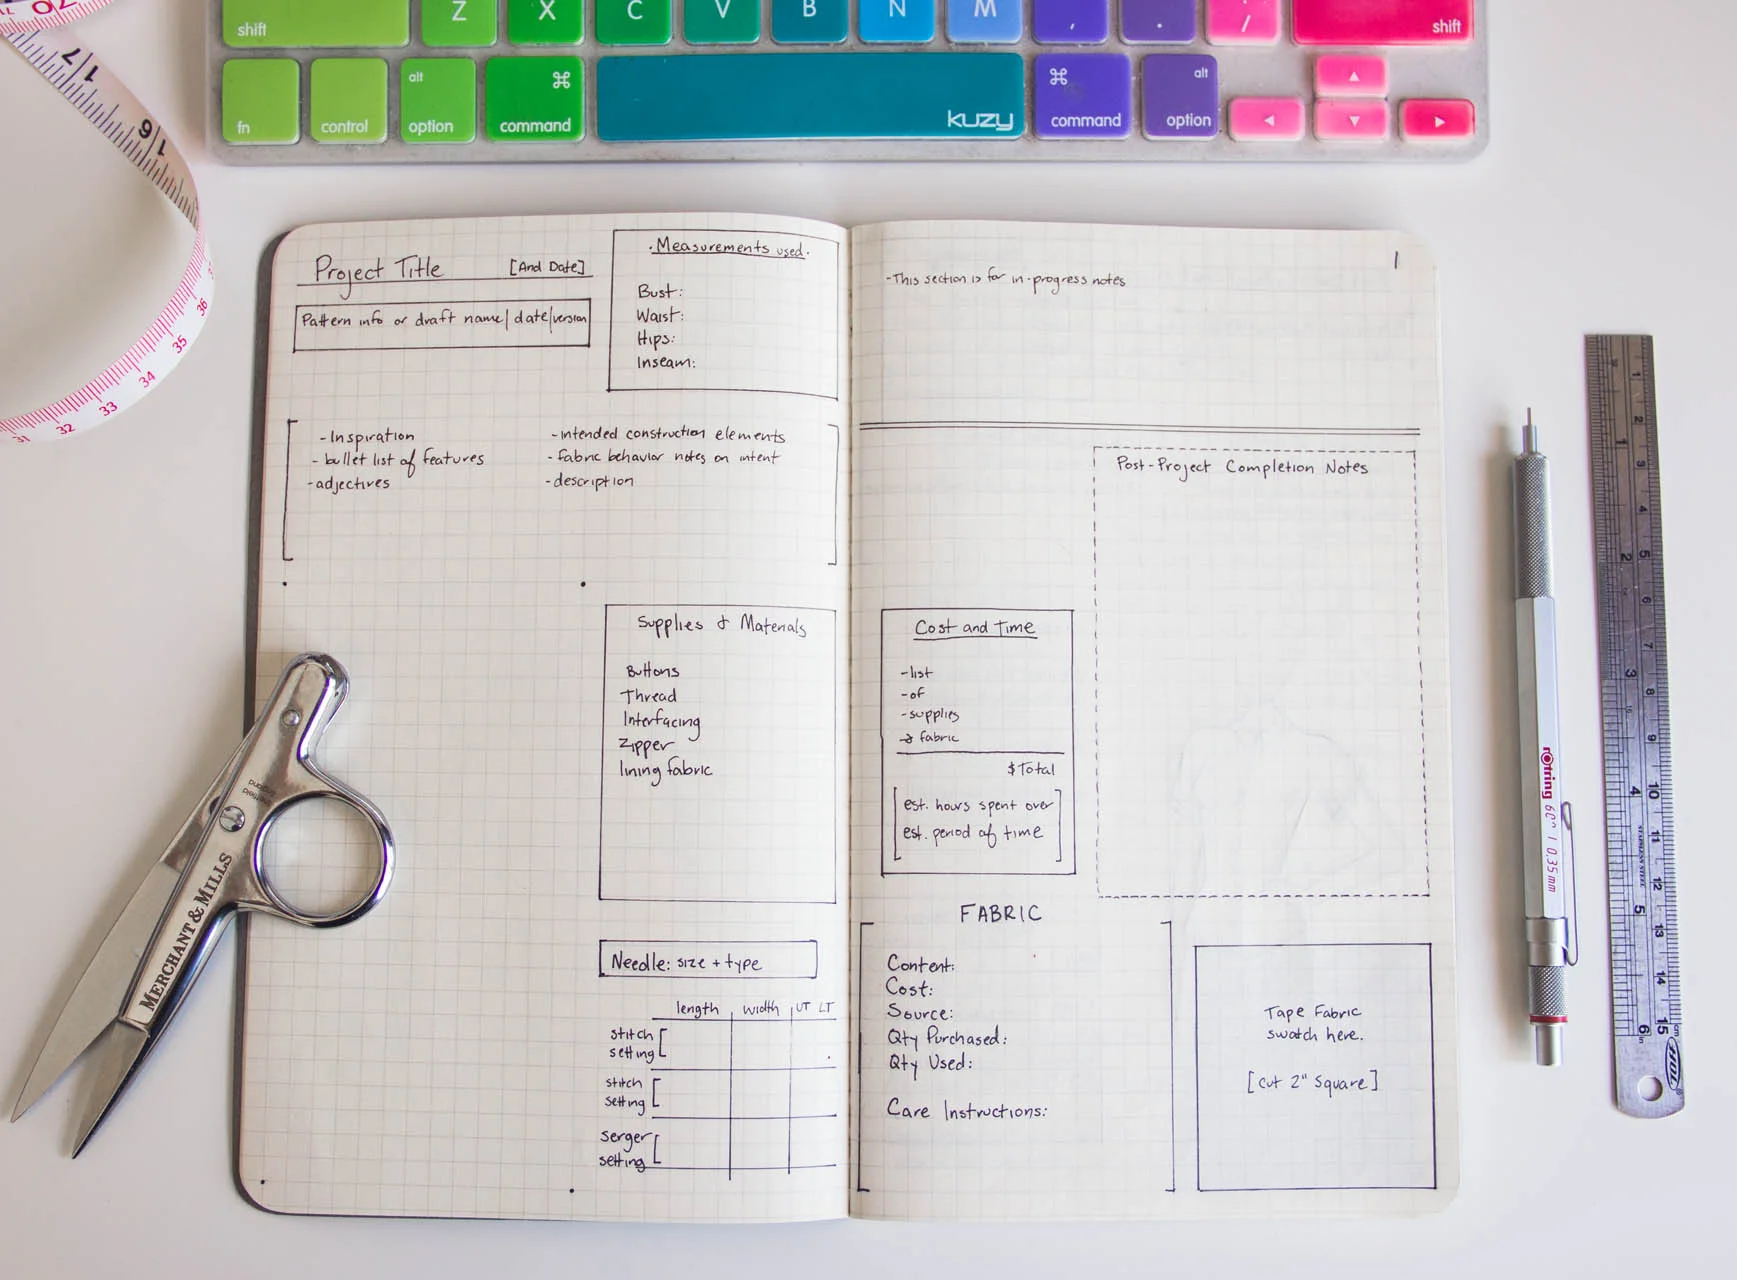 shift
Z
X
C
V
B
N
M
,
.
/
shift
fn
control
alt
option
⌘
command
kuzy
⌘
command
alt
option
17
16
36
35
34
33
32
31
Project Title [And Date]
Pattern info or draft name/date/version
·Measurements used·
Bust:
Waist:
Hips:
Inseam:
-Inspiration
-bullet list of features
-adjectives
-intended construction elements
-fabric behavior notes on intent
-description
Supplies & Materials
Buttons
Thread
Interfacing
Zipper
lining fabric
Needle: size + type
length width UT LT
stitch
setting
stitch
setting
serger
setting
1
-This section is for in-progress notes
Post-Project Completion Notes
Cost and Time
-list
-of
-supplies
→ fabric
$Total
[est. hours spent over
est. period of time]
FABRIC
Content:
Cost:
Source:
Qty Purchased:
Qty Used:
Care Instructions:
Tape Fabric
swatch here.
[cut 2" Square]
Sheffield
England
MERCHANT & MILLS
rOtring 600 | 0.35mm
1 2 3 4 5 6 7 8 9 10 11 12 13 14 15 cm
1 2 3 4 5 6 in
STAINLESS STEEL